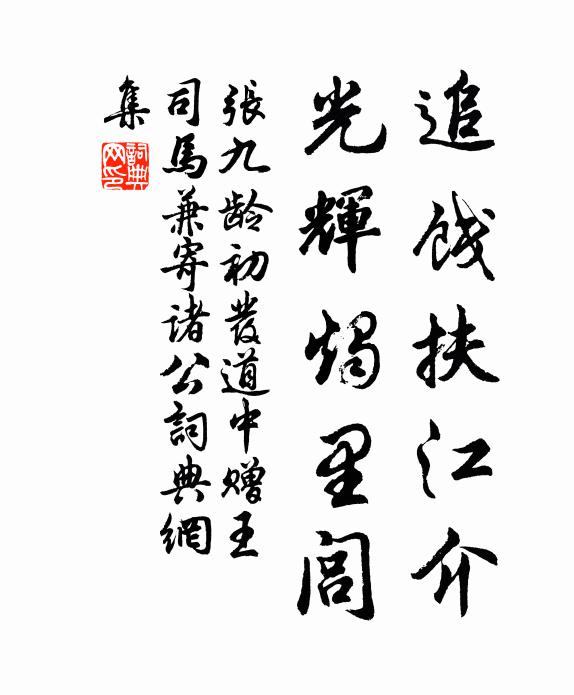 追餞扶江介
光輝燭里閭
張九齡初發道中贈王
司馬兼寄諸公詞典網
集
詞典
网印